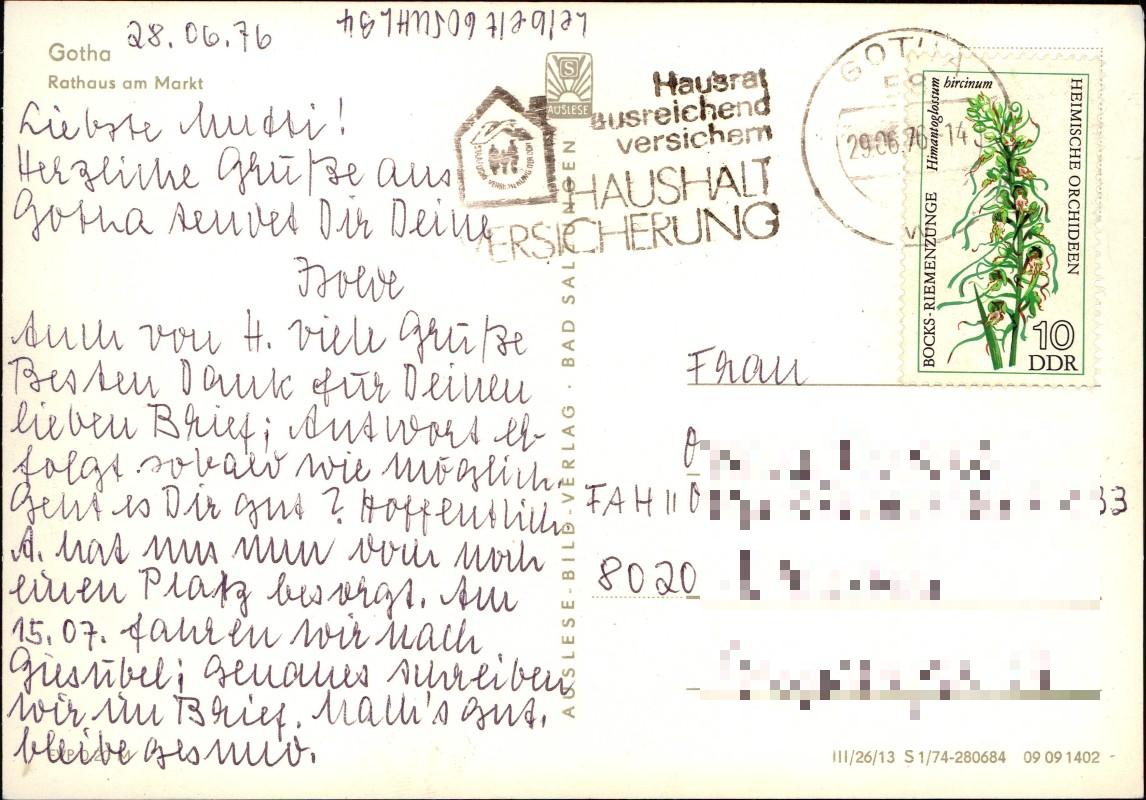 28.06.76
Gotha
Rathaus am Markt
Liebste Mutti!
Herzliche Grüße aus
Gotha sendet Dir Deine
Isolde
Auch von H. viele Grüße
Besten Dank für Deinen
lieben Brief; Antwort er-
folgt sobald wie möglich.
Geht es Dir gut? Hoffentlich.
A. hat uns nun doch noch
einen Platz besorgt. Am
15.07. fahren wir nach
Giesübel; genaues schreiben
wir im Brief. Mach's gut,
bleibe gesund.
AUSLESE
AUSLESE-BILD-VERLAG · BAD SALZUNGEN
Hausrat
ausreichend
versichern
HAUSHALT
VERSICHERUNG
GOTHA
29.06.76-14
BOCKS-RIEMENZUNGE Himantoglossum hircinum
HEIMISCHE ORCHIDEEN
10
DDR
Frau
8020
33
III/26/13 S 1/74-280684 09 09 1402